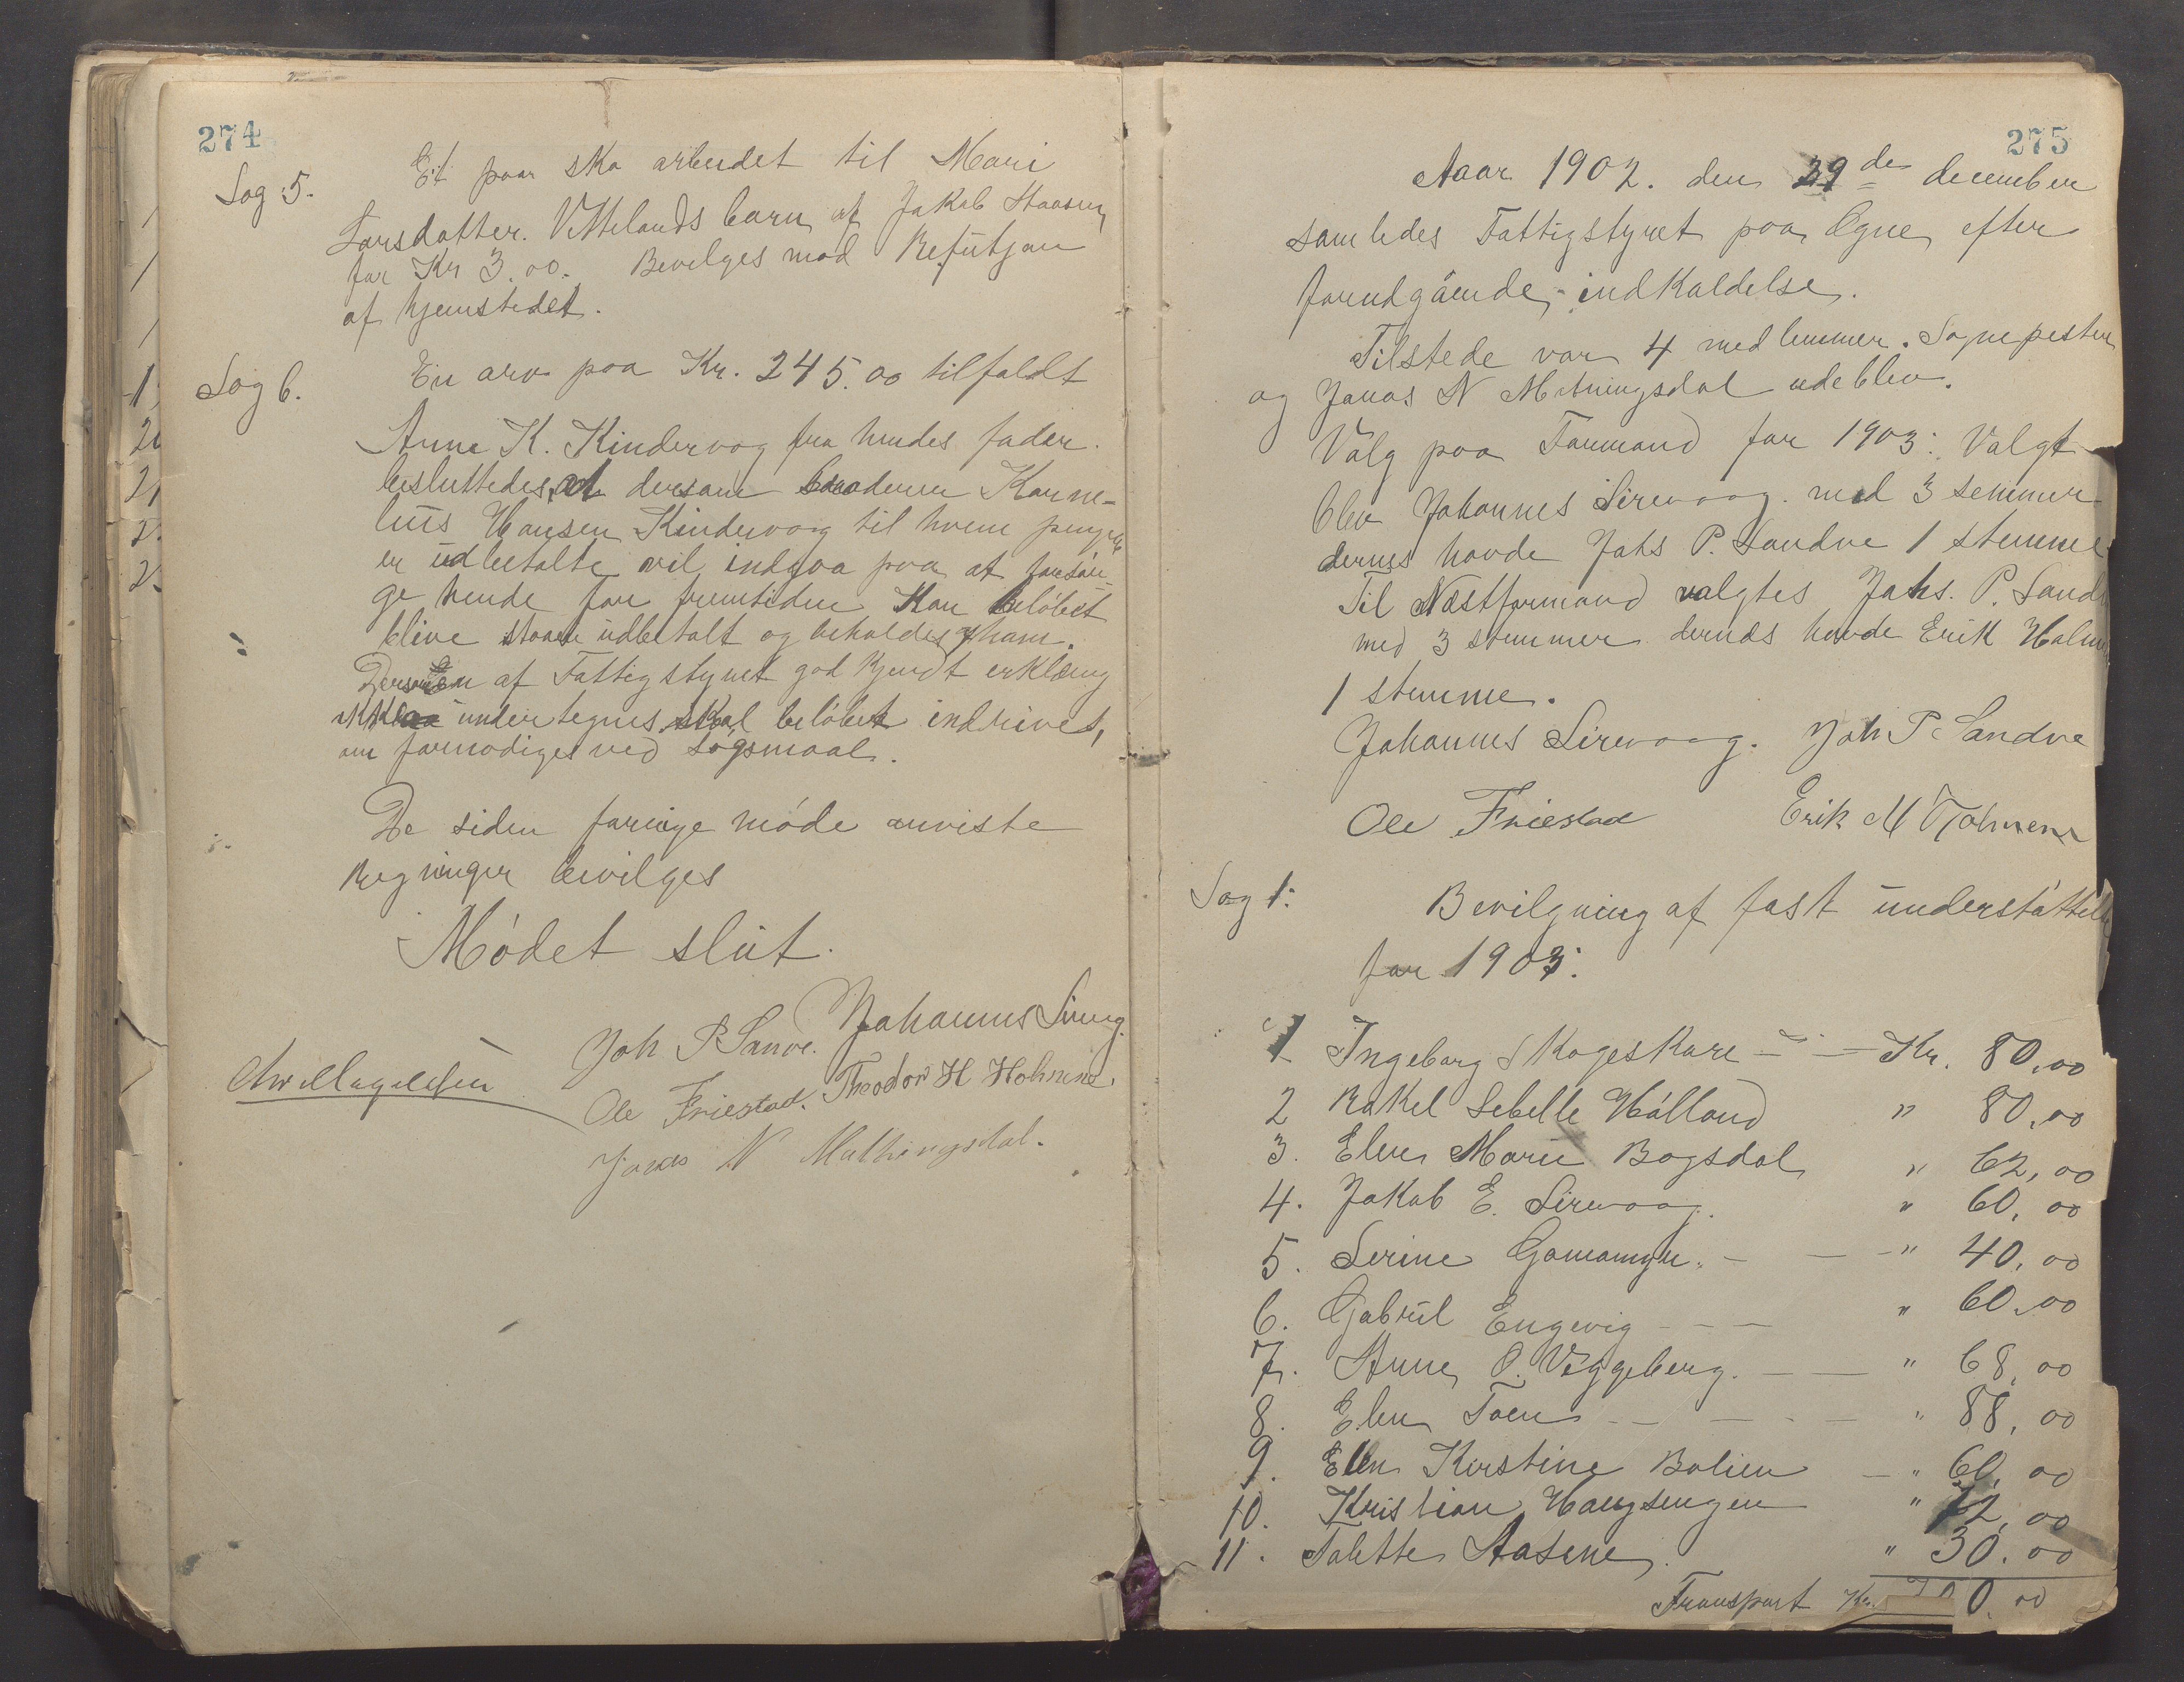 274
Sag 5. Et paar sko arbeidet til Mari
Larsdatter. Vettelands barn af Jakob Staasen
for Kr 3.00. Bevilges mod Refutjon
af hjemstedet.
Sag 6. En arv paa Kr. 245.00 tilfaldt
Anna K. Kindervog fra hendes fader.
besluttedes, at dersom broderen Karne-
lius Hansen Kindervog til hvem penge
er udbetalte vil indgaa paa at forsør-
ge hende for fremtiden kan beløbet
blive staaen udbetalt og beholdes af ham.
Dersom en af Fattigstyret godkjendt erklæring
ikke undertegnes skal beløbet indrives,
om fornødiges ved søgsmaal.
De siden forrige møde anviste
Regninger bevilges
Mødet slut.
Joh P Sanve. Johannes Sirevg.
Ole Friestad. Theodor H Holmene.
Jonas N Mathingsdal.
275
Aaar 1902. den 29de december
samledes Fattigstyret paa Ogne, efter
forudgående indkaldelse.
Tilstede var 4 medlemmer. Sognepesten
og Jonas N Matningsdal udeblev.
Valg paa Formand for 1903: Valgt
blev Johannes Sirevaag. med 3 semmer
dernes havde Johs P. Sandve 1 stemme
Til Næstformand valgtes Johs. P. Sandv
med 3 stemmer dernds havde Erik Holm
1 stemme.
Johannes Sirevaag. Joh P Sandve
Ole Friestad Erik M Holmene
Sag 1: Bevilgning af fast understøttelse
for 1903:
1 Ingeborg Skogeskare — — Kr. 80,00
2 Rakel Sebelle Hålland " 80,00
3. Elen Marie Bogsdal " 62,00
4. Jakob E. Sirevaag. " 60,00
5. Serine Gomamyr. — — " 40,00
6. Gabriel Engevig — — — " 60,00
7. Anne O. Viggeberg. — — " 68,00
8. Elen Toen — — — — — " 88,00
9. Ellen Kirstine Bolien — " 60,00
10. Kristian Haugsengen " 72,00
11. Talette Aasene. " 30.00
Transport Kr. 700.00